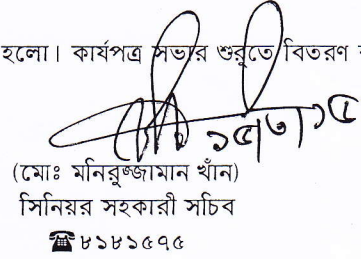 হলো। কার্যপত্র সভার শুরুতে বিতরণ
১৫/৩/১৫
(মোঃ মনিরুজ্জামান খাঁন)
সিনিয়র সহকারী সচিব
☎৮১৮১৫৭৫